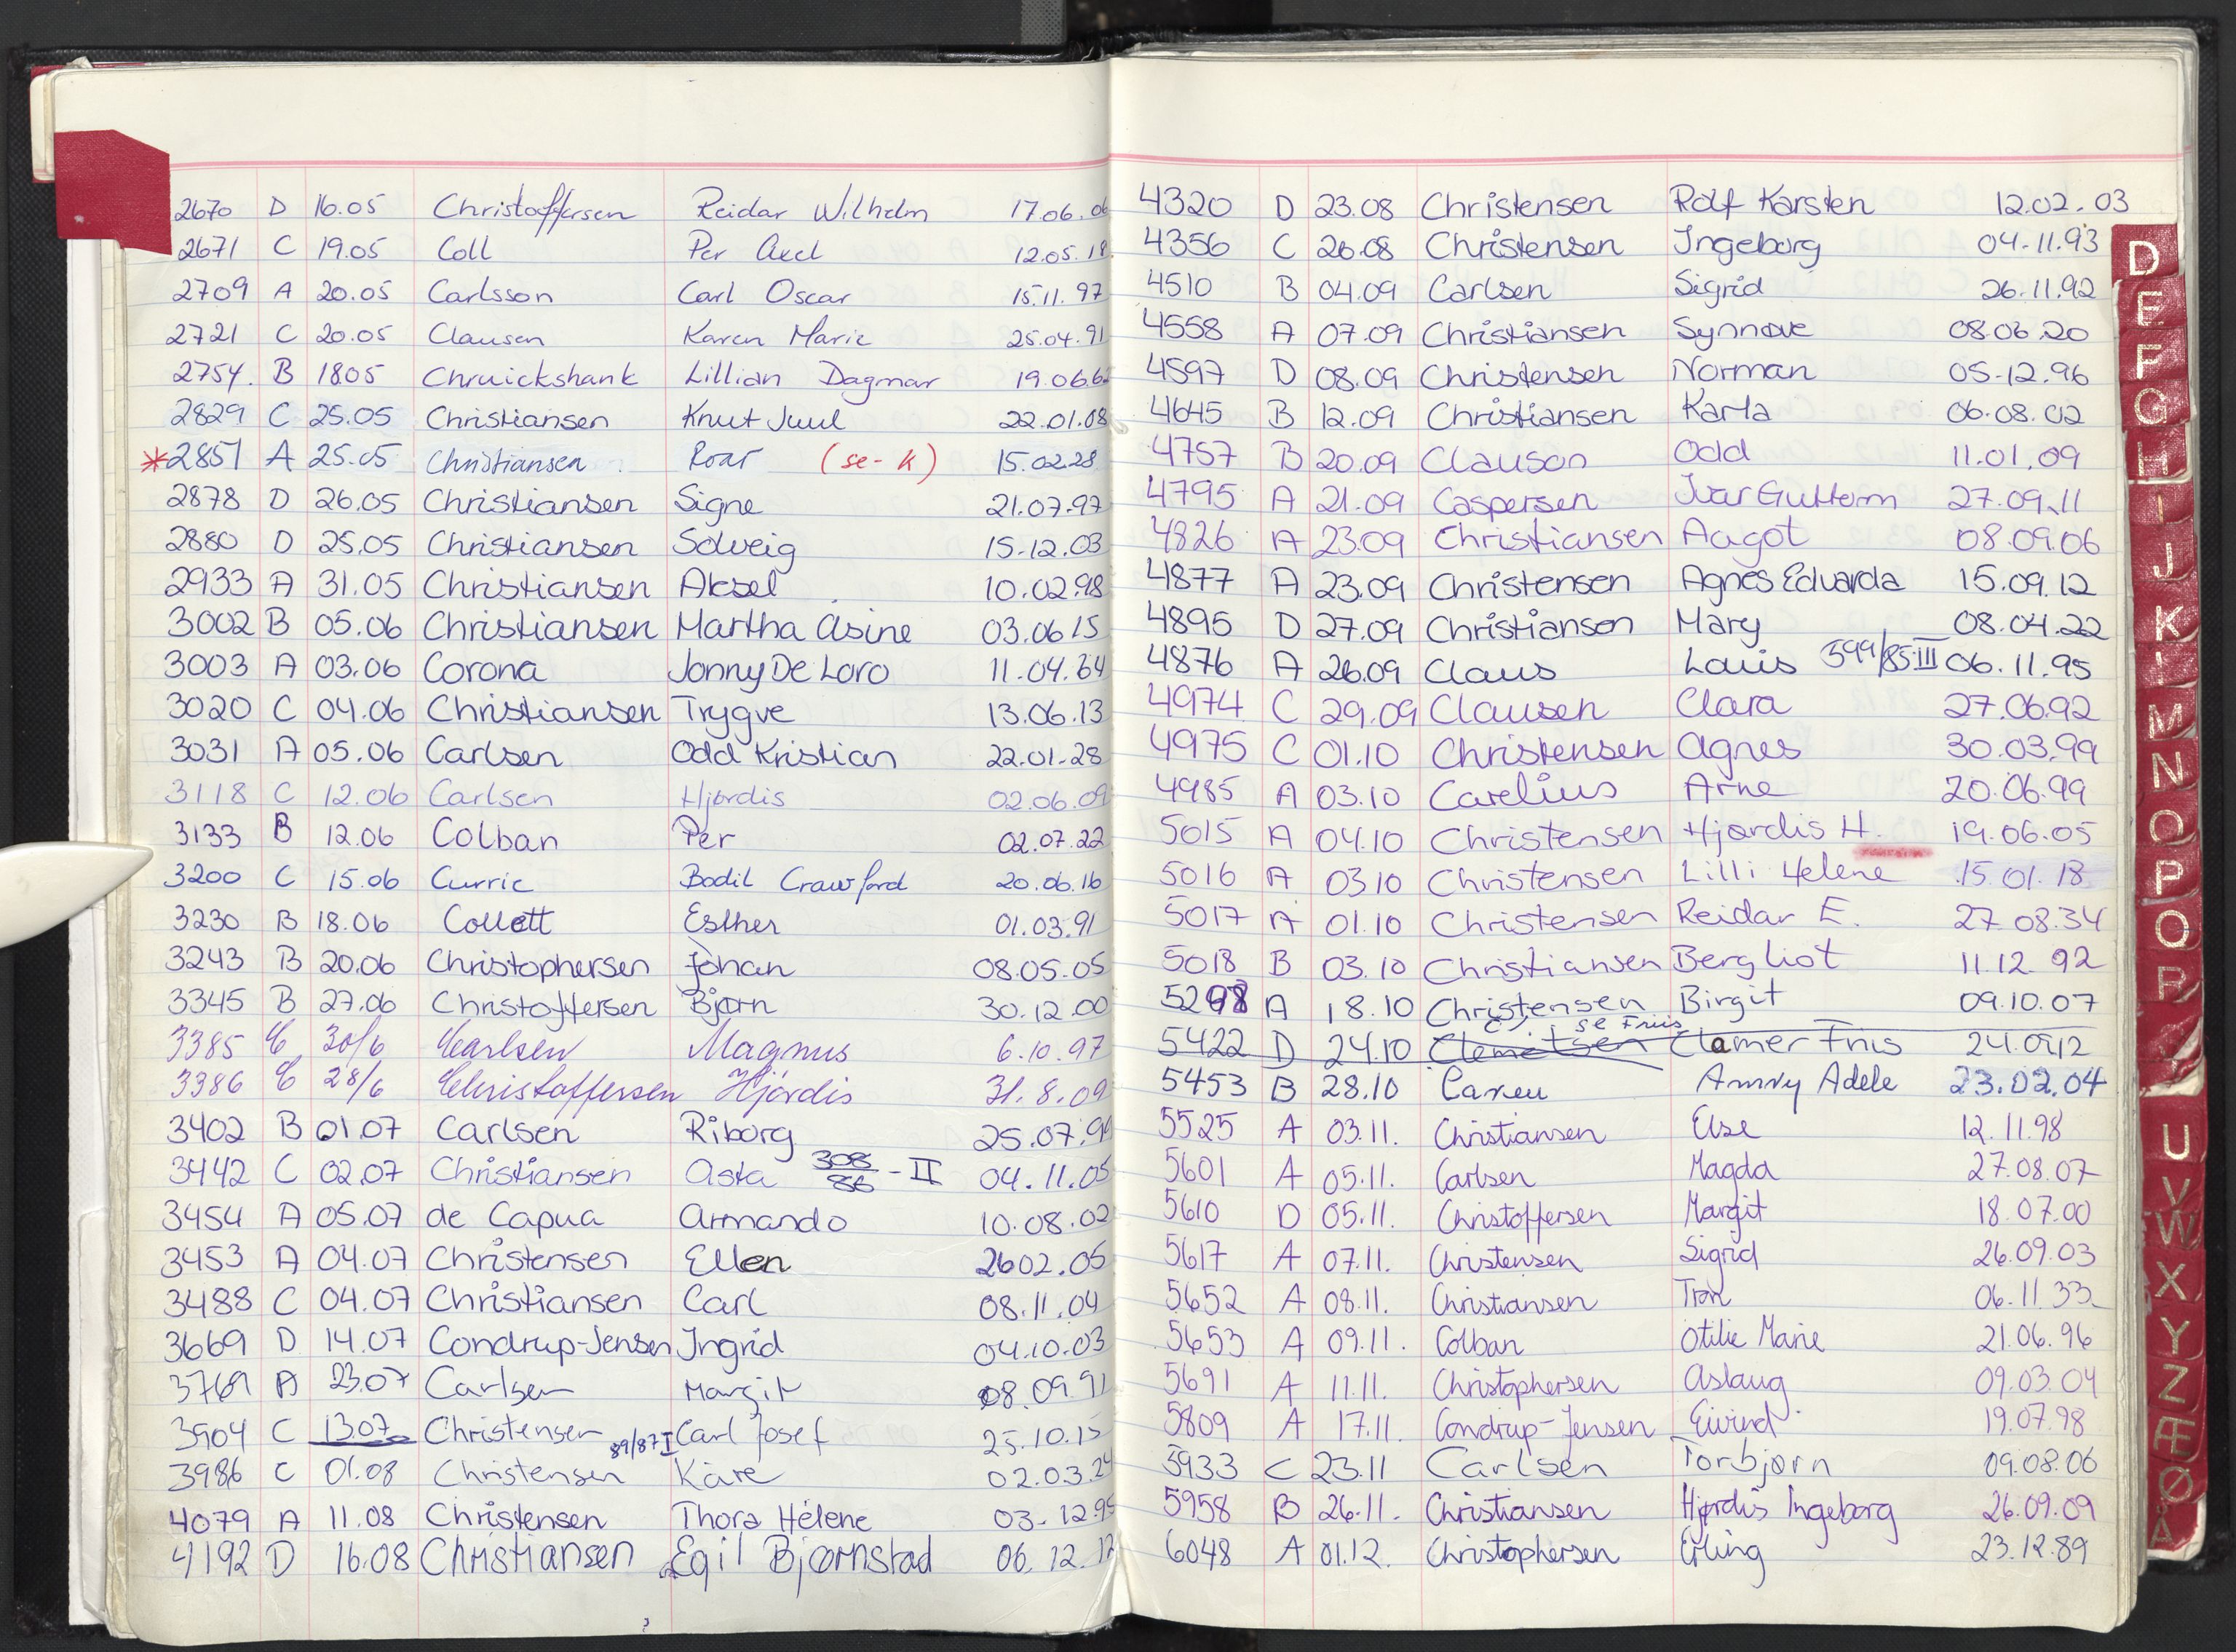 2670 D 16.05 Christoffersen Reidar Wilhelm 17.06.06
2671 C 19.05 Coll Per Axel 12.05.18
2709 A 20.05 Carlsson Carl Oscar 15.11.97
2721 C 20.05 Clausen Karen Marie 25.04.91
2754. B 1805 Chruickshank Lillian Dagmar 19.06.62
2829 C 25.05 Christiansen Knut Juul 22.01.08
*2851 A 25.05 Christiansen Roar (se-K) 15.02.28
2878 D 26.05 Christiansen Signe 21.07.97
2880 D 25.05 Christiansen Solveig 15-12.03
2933 A 31.05 Christiansen Aksel 10.02.98
3002 B 05.06 Christiansen Martha Asine 03.06 15
3003 A 03.06 Corona Jonny De Loro 11.04.64
3020 C 04.06 Christiansen Trygve 13.06.13
3031 A 05.06 Carlsen Odd Kristian 22.01-28
3118 C 12.06 Carlsen Hjørdis 02.06.09
3133 B 12.06 Colban Per 02.07.22
3200 C 15.06 Currie Bodil Crawford 20.06.16
3230 B 18.06 Collett Esther 01.03.91
3243 B 20.06 Christophersen Johan 08.05.05
3345 B 27.06 Christoffersen Bjørn 30.12.00
3385 C 30/6 Carlsen Magnus 6.10.97
3386 C 28/6 Christoffersen Hjördis 31.8.09
3402 B 01.07 Carlsen Riborg 25.07.99
3442 C 02.07 Christiansen Asta 308/86 - II 04.11.05
3454 A 05.07 de Capua Armando 10.08.02
3453 A 04.07 Christensen Ellen 2602.05
3488 C 04.07 Christiansen Carl 08.11.04
3669 D 14.07 Condrup-Jensen Ingrid 04.10.03
3769 A 23.07 Carlsen Margit 08.09.91
3904 C 13.07 Christensen 89/87 I Carl Josef 25.10.15
3986 C 01.08 Christensen Kåre 02.03.24
4079 A 11.08 Christensen Thora Helene 03-12.95
4192 D 16.08 Christiansen Egil Bjørnstad 06.12.12
4320 D 23.08 Christensen Rolf Karsten 12.02.03
4356 C 26.08 Christensen Ingeborg 04-11.93
4510 B 04.09 Carlsen Sigrid 26.11.92
4558 A 07.09 Christiansen Synnøve 08.06.20
4597 D 08.09 Christensen Norman 05-12.96
4645 B 12.09 Christiansen Karla 06.08.02
4757 B 20.09 Clauson Odd 11.01.09
4795 A 21.09 Caspersen Ivar Guttorm 27.09.11
4826 A 23.09 Christiansen Aagot 08.09.06
4877 A 23.09 Christensen Agnes Edvarda 15.09.12
4895 D 27.09 Christianson Mary 08.04.22
4876 A 26.09 Claus Louis 399/85 III 06.11.95
4974 C 29.09 Clausen Clara 27.06.92
4975 C 01.10 Christensen Agnes 30.03.99
4985 A 03.10 Carelius Arne 20.06.99
5015 A 04.10 Christensen Hjørdis H. 19.06.05
5016 A 03.10 Christensen Lilli Helene 15.01.18
5017 A 01.10 Christensen Reidar E. 27.08.34
5018 B 03.10 Christiansen Bergliot 11.12.92
5298 A 18.10 Christensen Birgit 09.10.07
se Friis
5422 D 24.10 Clemetsen Clamer Friis 24.09.12
5453 B 28.10 Amny Adele 23.02.04
5525 A 03.11. Christiansen Else 12.11.98
5601 A 05.11. Carlsen Magda 27.08.07
5610 D 05.11. Christoffersen Margit 18.07.00
5617 A 07.11. Christensen Sigrid 26.09.03
5652 A 08.11. Christiansen 06.11.33
5653 A 09.11. Colban Otilie Marie 21.06.96
5691 A 11.11. Christophersen Aslaug 09.03.04
5809 A 17.11. Condrup-Jensen Eivind 19.07.98
5933 C 23.11 Carlsen Torbjørn 09.08.06
5958 B 26.11. Christiansen Hjørdis Ingeborg 26.09.09
6048 A 01.12. Christophersen Erling 23.12.89
D
E
F
G
H
I
J
K
L
M
N
O
P
Q
R
U
V
W
X
Y
Z
Æ
Ø
Å